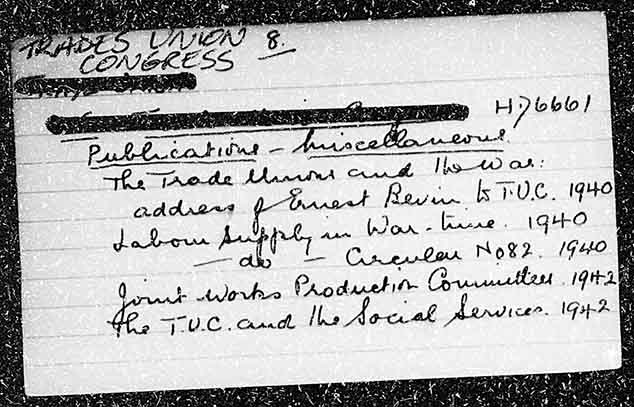 TRADES UNION 8.
CONGRESS
HD6661
Publications - Miscellaneous
The Trade Unions and the War:
address of Ernest Bevin to T.U.C. 1940
Labour Supply in War-time. 1940
— do — Circular No 82. 1940
Joint Works Production Committees. 1942
The T.U.C. and the Social Services. 1942